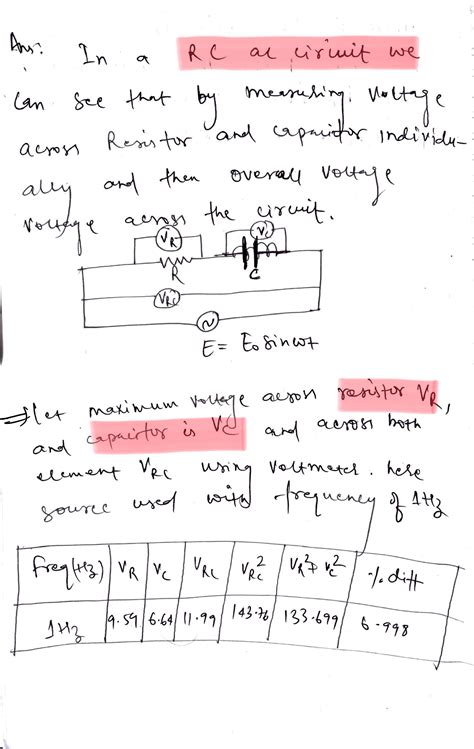 Ans: In a RC ac circuit we
Can see that by measuring. Voltage
across Resistor and capacitor individu-
ally and then overall voltage
voltage across the circuit.
VR
Vc
R
C
VRC
~
E= E0 sinωt
⇒ let maximum voltage across resistor VR,
and capacitor is Vc and across both
element VRC using Voltmeter. here
source used with frequency of 1Hz
Freq(Hz) | VR | Vc | VRC | VRC² | VR²+Vc² | % diff
1Hz | 9.59 | 6.64 | 11.99 | 143.76 | 133.699 | 6.998